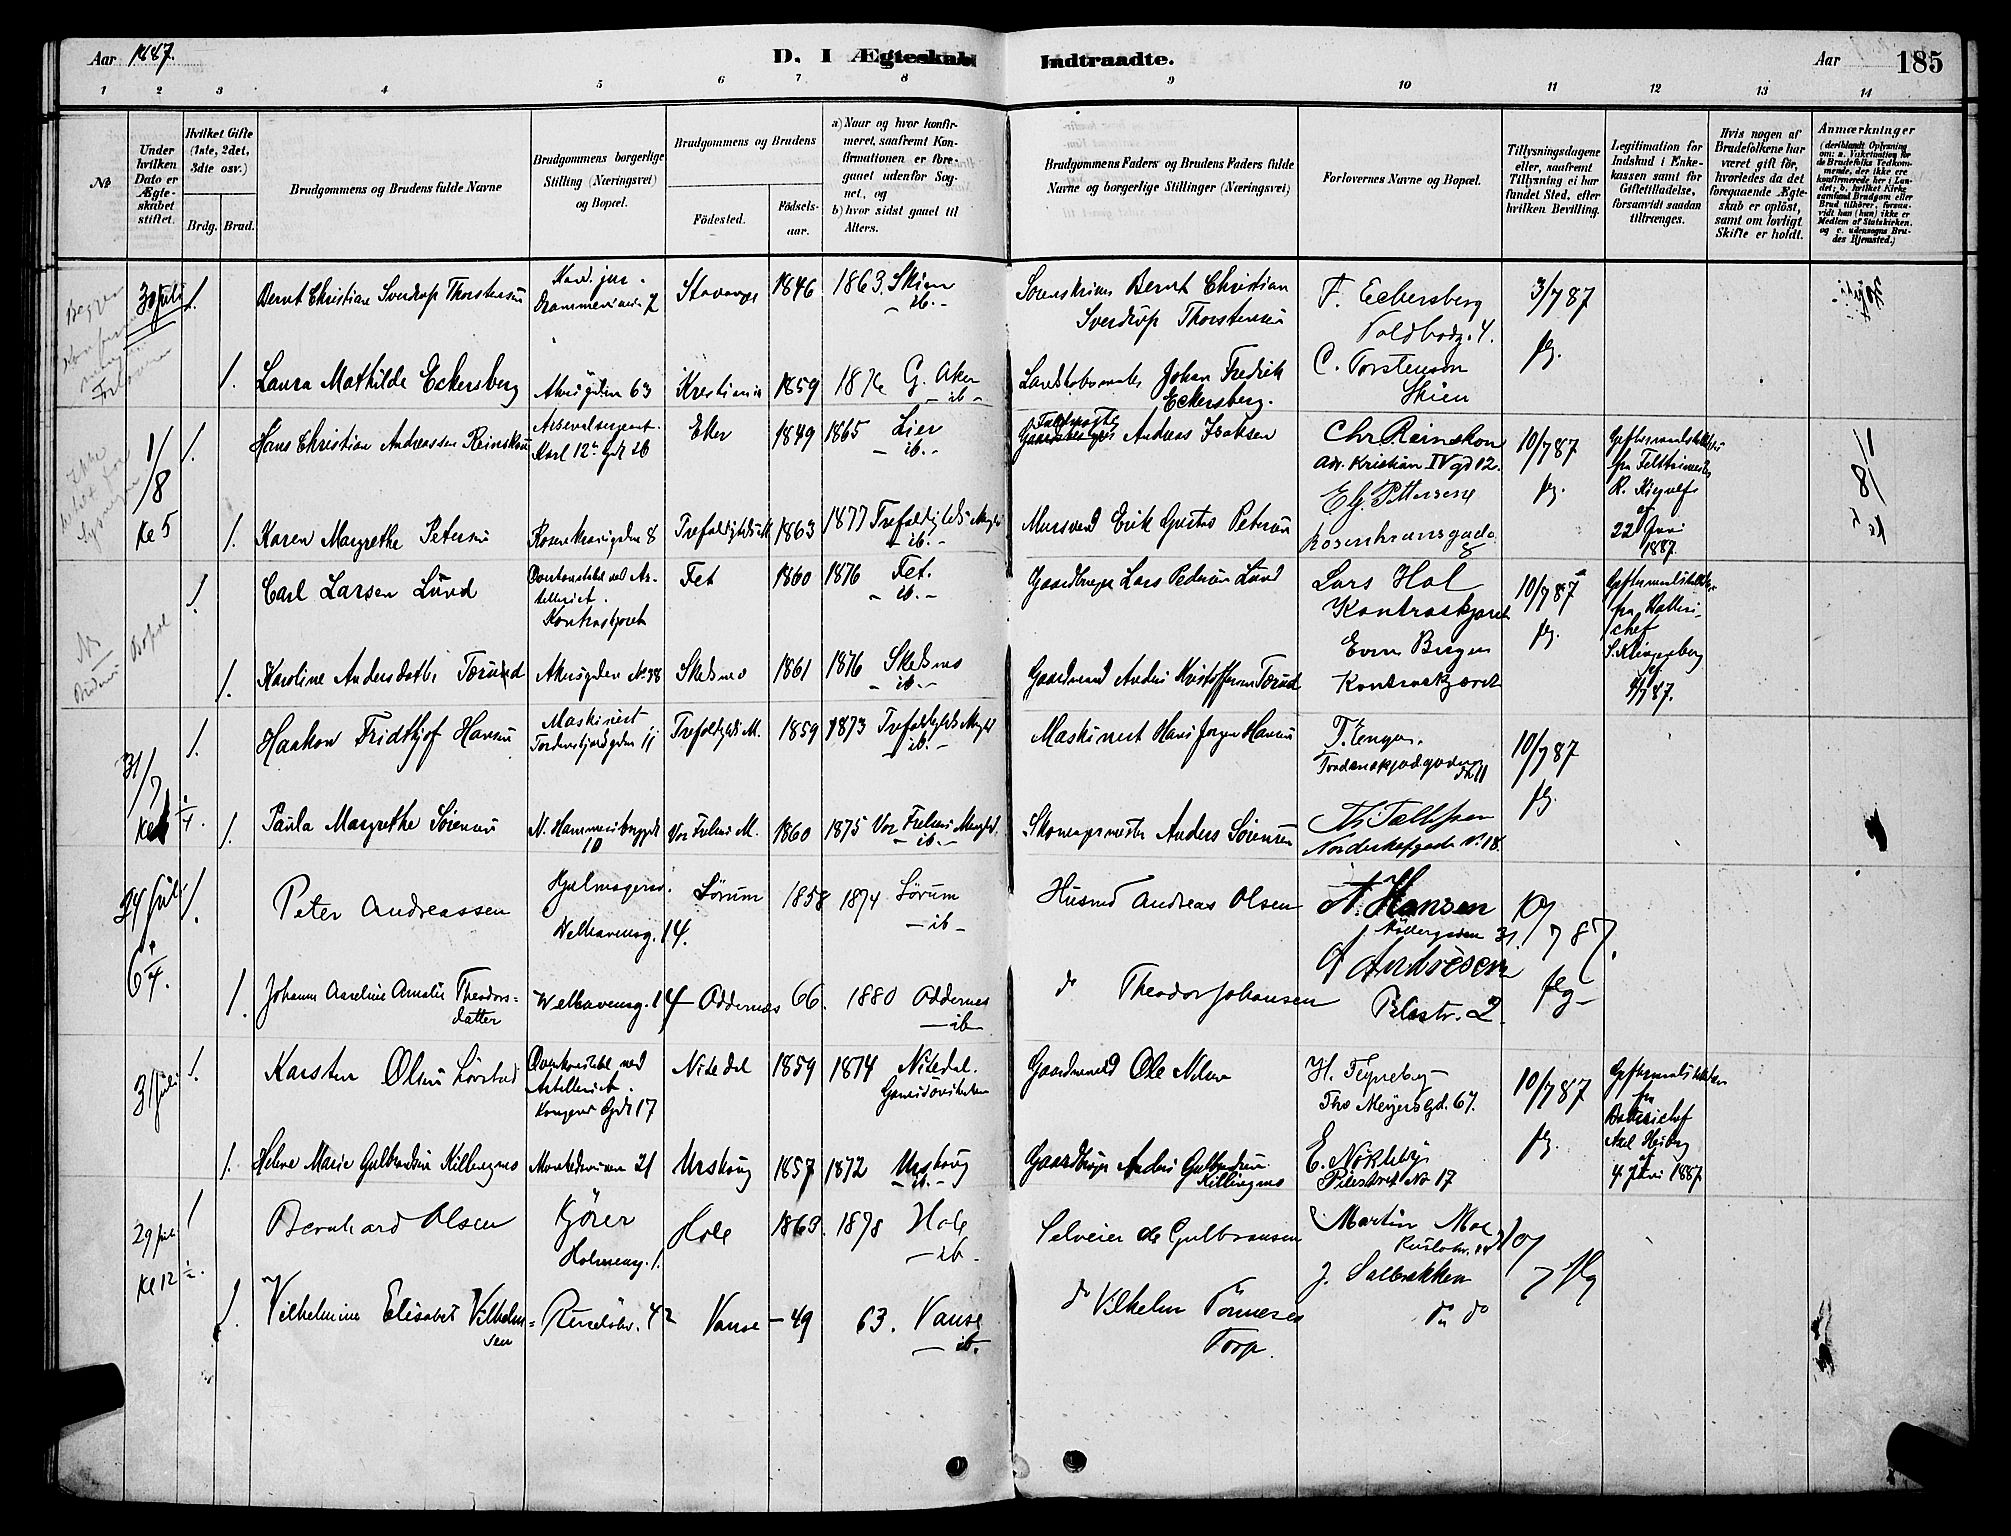 Aar 1887.
D. I Ægteskab Indtraadte.
Aar
185
1 2 3 4 5 6 7 8 9 10 11 12 13 14
No
Under hvilken Dato er Ægteskabet stiftet.
Hvilket Gifte (1ste, 2det, 3die osv.)
Brdg. Brud.
Brudgommens og Brudens fulde Navne
Brudgommens borgerlige Stilling (Næringsvei) og Bopæl.
Brudgommens og Brudens
Fødested.
Fødsels-aar.
a) Naar og hvor konfirmeret, saafremt Konfirmationen er foregaaet udenfor Sognet, og
b) hvor sidst gaaet til Alters.
Brudgommens Faders og Brudens Faders fulde Navne og borgerlige Stillinger (Næringsvei)
Forlovernes Navne og Bopæl.
Tillysningsdagene eller, saafremt Tillysning ei har fundet Sted, efter hvilken Bevilling.
Legitimation for Indskud i Enkekassen samt for Giftetilladelse, forsaavidt saadan tiltrænges.
Hvis nogen af Brudefolkene har været gift før, hvorledes da det foregaaende Ægteskab er opløst, samt om lovligt Skifte er holdt.
Anmærkninger
(deriblandt Oplysning om: a. Vaksination for de Brudefolks Vedkommende, der ikke ere konfirmerede her i Landet; b. hvilket Kirkesamfund Brudgom eller Brud tilhører, forsaavidt han (hun) ikke er Medlem af Statskirken. og c. udensogns Brudes Hjemsted.)
30 Juli 1. Bernt Christian Sverdrup Thorstensen
Kand. jur.
Drammensveien 7
Stavanger 1846 1863. Skien
- ib. -
Sorenskriver Bernt Christian
Sverdrup Thorstensen
F. Eckersberg
Toldbodg. 4.
3/7 87
1. Laura Mathilde Eckersberg
Akersgaden 63 Kristiania 1859 1876 G. Aker
- ib -
Landskabsmaler Johan Fredrik
Eckersberg.
C. Torstenson
Skien
1/8 Ke 5
1. Hans Christian Andreassen Reinskou
Arsenalsergeant.
Karl 12te Gd 26
Eker 1849 1865 Lier
- ib. -
Andreas Isaksen
Chr Reinskou
adr. Kristian IV gd 12.
10/7 87
fra Felttøimester
22 Juni
1887.
1/8
1. Karen Margrethe Petersen
Rosenkransgaden 8 Trefoldigheds M. 1863 1877 Trefoldigheds Mgh
- ib. -
Mursvend Erik Gustav Petersen
E. G. Pettersene
Rosenkransgade
8
1. Carl Larsen Lund
Overkonstabel ved Artilleriet.
Kontraskjæret
Fet 1860 1876 Fet.
- ib. -
Gaardbruger Lars Pedersen Lund
Lars Hol
Kontraskjæret
10/7 87
fra Batteri-
chef
S. Klingenberg
1. Karoline Andersdatter Torud
Akersgaden No 38 Skedsmo 1861 1876 Skedsmo
- ib. -
Gaardmand Anders Kristoffersen Torud
Even Bergen
Kontraskjæret
31/7
1. Haakon Fridthjof Hansen
Maskinist
Tordenskjoldsgaden 11
Trefoldigh. M. 1859 1873 Trefoldigheds Mgh
- ib. -
Maskinist Hans Jørgen Hansen
T. Engen.
Tordenskjoldgaden
No 11
10/7 87
1. Paula Margrethe Sørensen
N. Hammersborggd
10
Vor Frelsers M. 1860 1875 Vor Frelsers Mengh.
- ib. -
Skomagermester Anders Sørensen
24 Juli
6 1/4.
1. Peter Andreassen
Hjulmagersv.
Welhavensg. 14.
Sørum 1858 1874 Sørum
- ib -
Husmd Andreas Olsen
A. Hansen
Møllergaden 31.
10/7 87.
1. Johanne Aareline Amalie Theodors=
datter
Welhavensg. 14 Oddernes 66. 1880 Oddernes
- ib -
do Theodor Johansen
A Andresen
Pilestr. 2.
flg -
31 Juli
1. Karsten Olsen Lørstad
Overkonstabel ved
Artilleriet.
Kongens Gd 17
Nitedal 1859 1874 Nitedal.
Garnisonskirken
Gaardmand Ole Nilsen
Ths Meyers Gd. 67.
10/7 87
fra
Batterichef
Axel Heiberg
af
4 Juni 1887.
1. Helene Marie Gulbrandsen Killingmo
Munkedamsveien 21 Urskoug 1857 1872 Urskoug
- ib. -
Gaardbruger Anders Gulbrandsen
Killingmo
E. Nøkleby
Pilestrædet No 17
29 Juli
Kl 12 1/2.
1 Bernhard Olsen
Kjører
Holmensg. 1.
Hole 1863. 1878 Hole
- ib -
Selveier Ole Gulbransen
Martin Moe
10/7 flg
1. Vilhelmine Elisabet Vilhelm=
sen
Vanse - 49 63. Vanse
- ib. -
do Vilhelm Tønnesen
Torp.
J. Salbrekken
do do